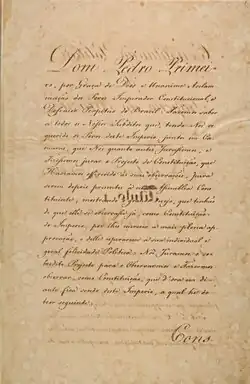 Dom Pedro Primei-
ro, por Graça de Deos e Unanime Accla-
mação dos Povos Imperador Constitucional, e
Defensor Perpetuo do Brasil Fazemos saber
a todos os Nossos Subditos que tendo Nos
os Povos deste Imperio, juntos em Ca-
maras, que Nós quanto antes Jurassemos, e
Jurar o Projecto de Constituição, que
Haviamos offerecido às suas observações, para
serem depois presentes à Assemblea Cons-
tituinte; que tinhão
de que elle se observasse já como Constituição
do Imperio, por lhes merecer a mais plena ap-
provação, e delle esperarem a sua individual e
geral felicidade Politica: Nós Juramos o so-
bredito Projecto para o Observarmos e Fazermos
observar, como Constituição, que d'ora em di-
ante fica sendo deste Imperio, a qual he do
theor seguinte:
Cons